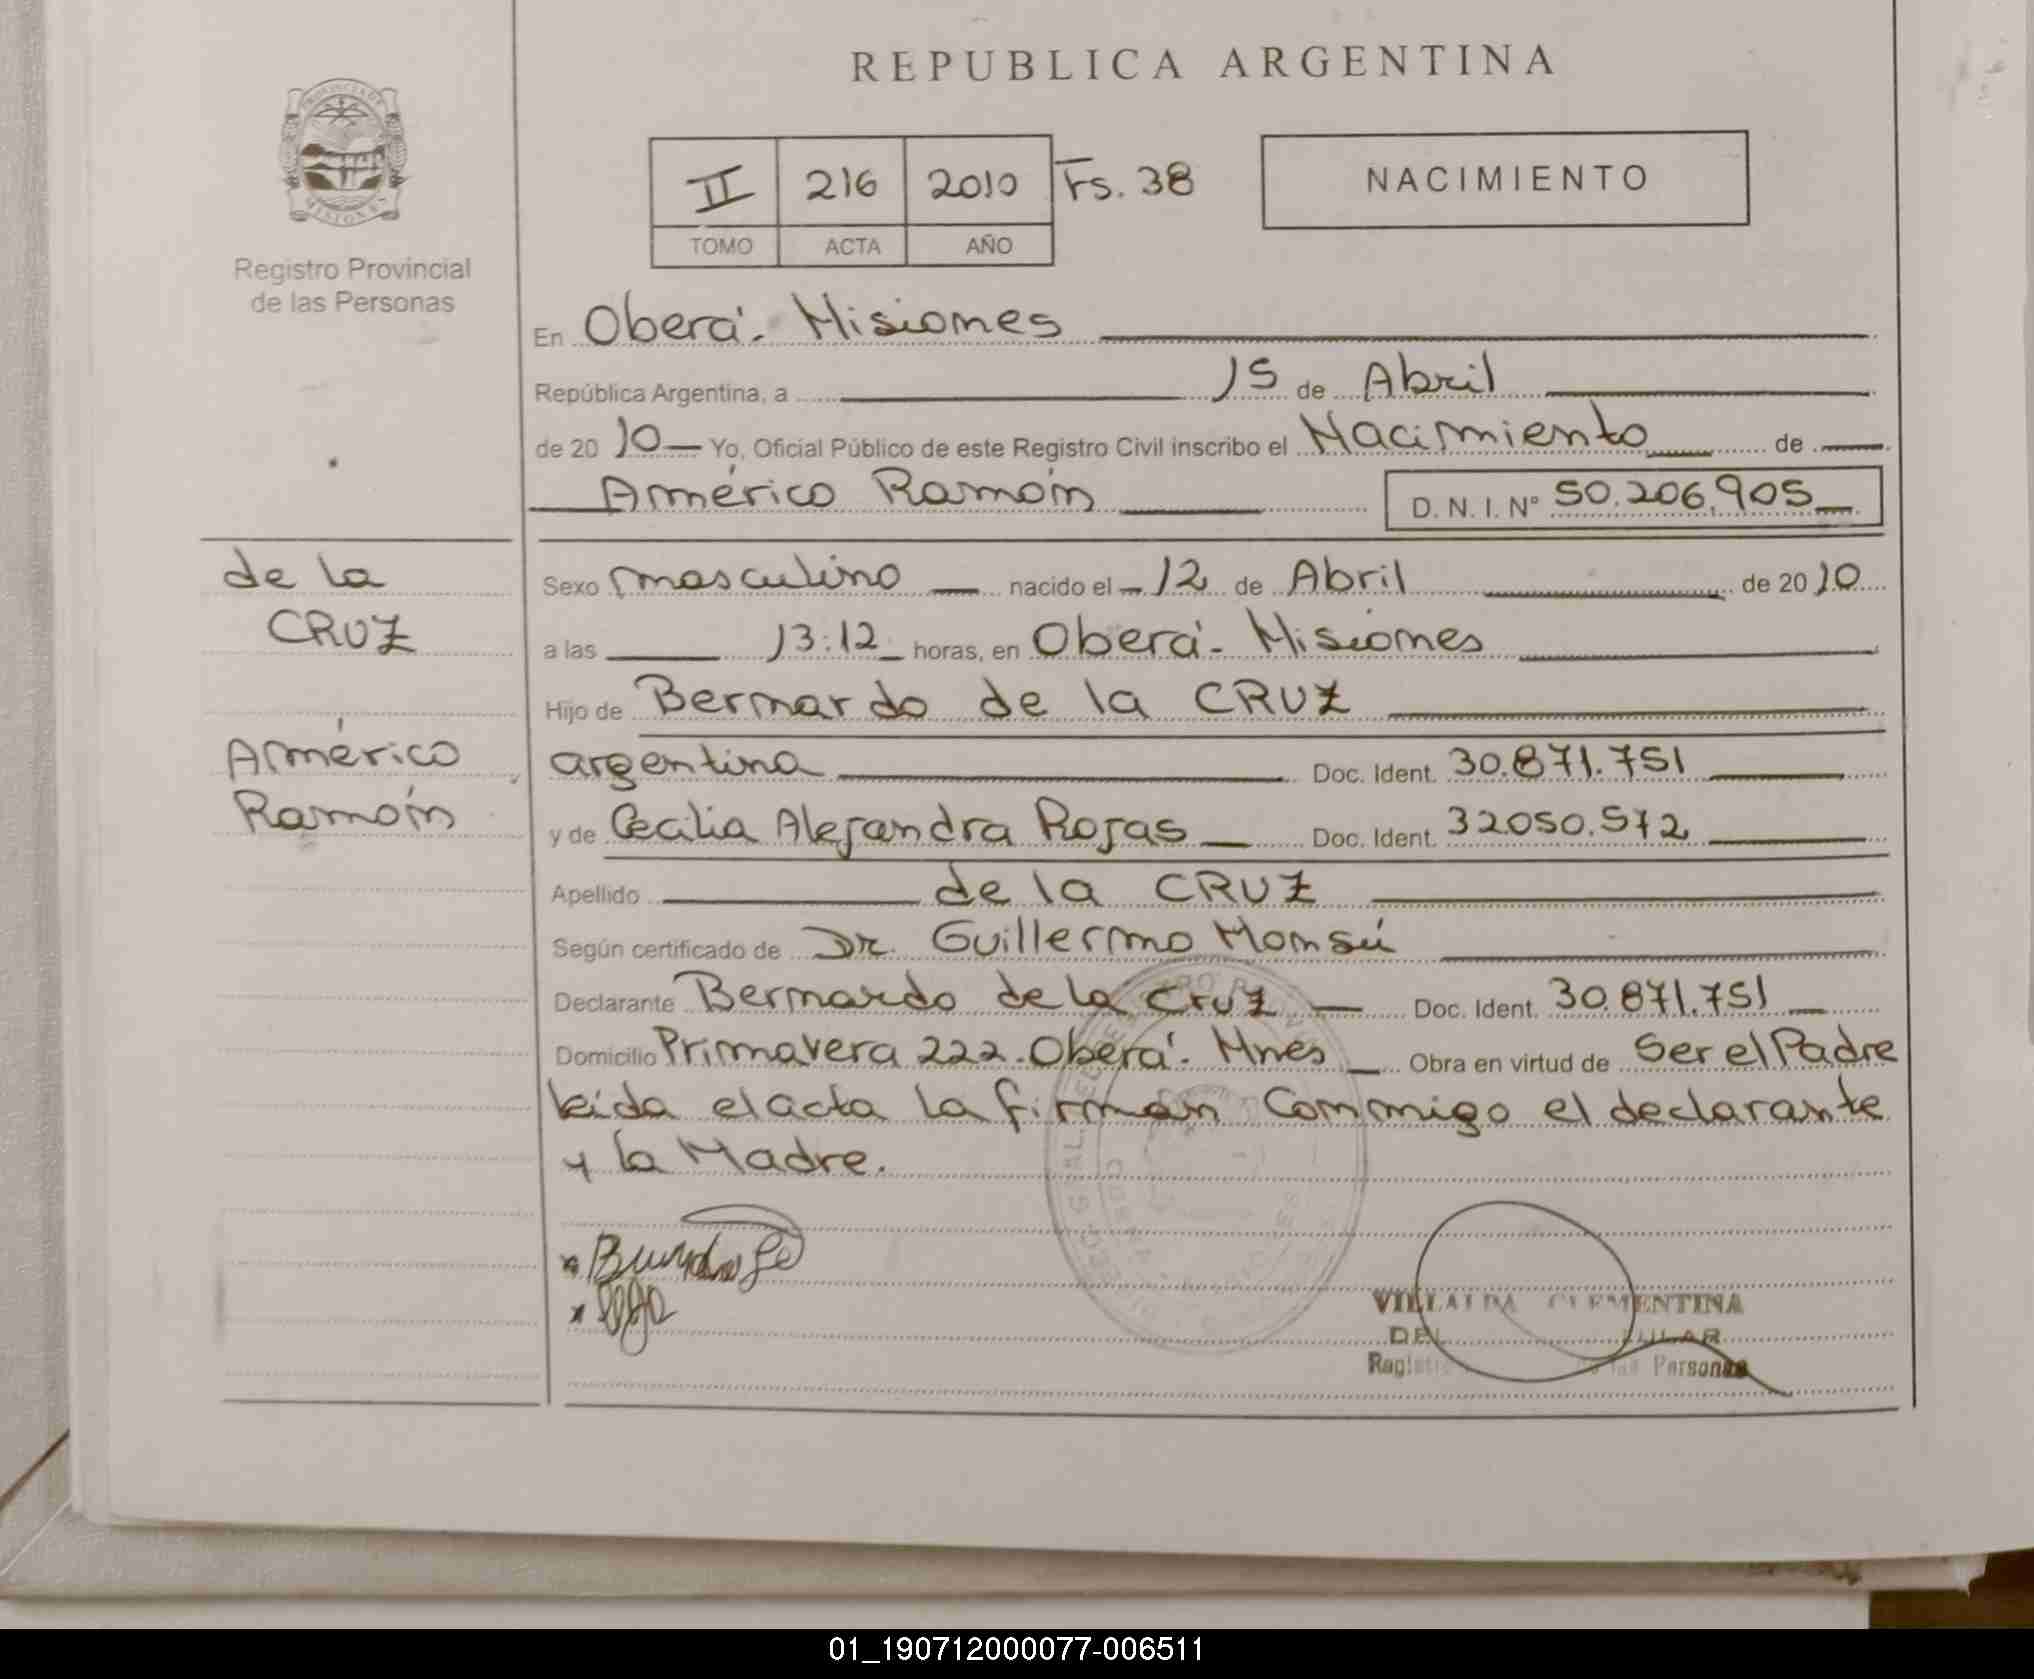 REPUBLICA ARGENTINA
PROVINCIA DE MISIONES
Registro Provincial
de las Personas
II 216 2010 Fs. 38
TOMO ACTA AÑO
NACIMIENTO
En Oberá - Misiones
República Argentina, a 15 de Abril
de 20 10 Yo, Oficial Público de este Registro Civil inscribo el Nacimiento de
Américo Ramón D. N. I. Nº 50.206.905
de la
CRUZ
Américo
Ramón
Sexo masculino nacido el 12 de Abril de 20 10
a las 13:12 horas, en Oberá - Misiones
Hijo de Bernardo de la CRUZ
argentina Doc. Ident. 30.871.751
y de Cecilia Alejandra Rojas Doc. Ident. 32050.572
Apellido de la CRUZ
Según certificado de Dr. Guillermo
Declarante Bernardo de la Cruz Doc. Ident. 30.871.751
Domicilio Primavera 222. Oberá - Mnes Obra en virtud de Ser el Padre
leída el acta la firman Conmigo el declarante
y la Madre.
VILLALBA CLEMENTINA
DEL
Registro de las Personas
01_190712000077-006511